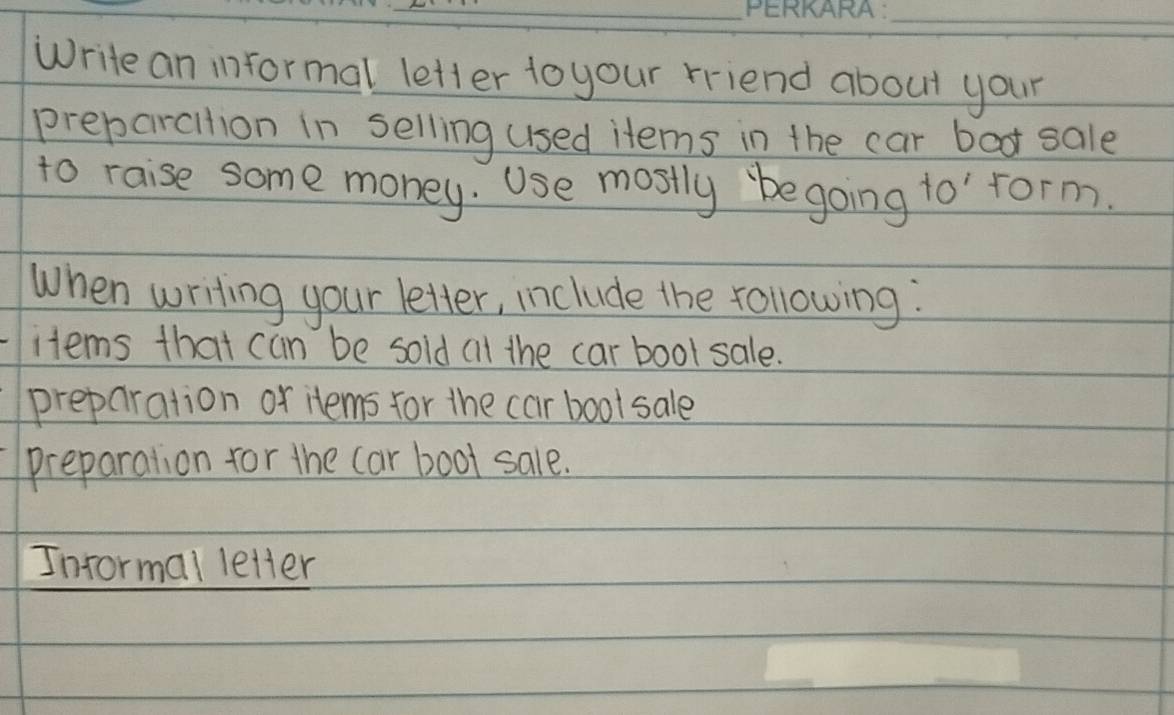 PERKARA :
Write an informal letter to your friend about your
preparation in selling used items in the car boot sale
to raise some money. Use mostly 'be going to' form.
When writing your letter, include the following:
- items that can be sold at the car boot sale.
- preparation of items for the car boot sale
- preparation for the car boot sale.
Informal letter